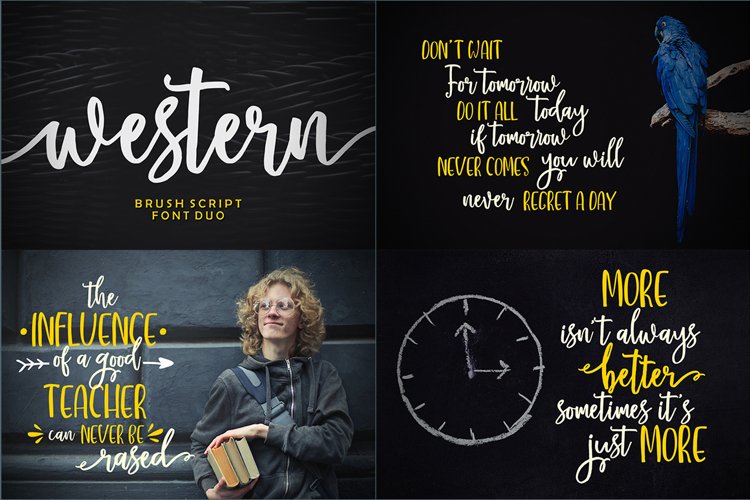 western
BRUSH SCRIPT
FONT DUO
DON'T WAIT
For tomorrow
DO IT ALL today
if tomorrow
NEVER COMES you will
never REGRET A DAY
the
•INFLUENCE•
of a good
TEACHER
can NEVER BE
erased
MORE
isn't always
better
sometimes it's
just MORE